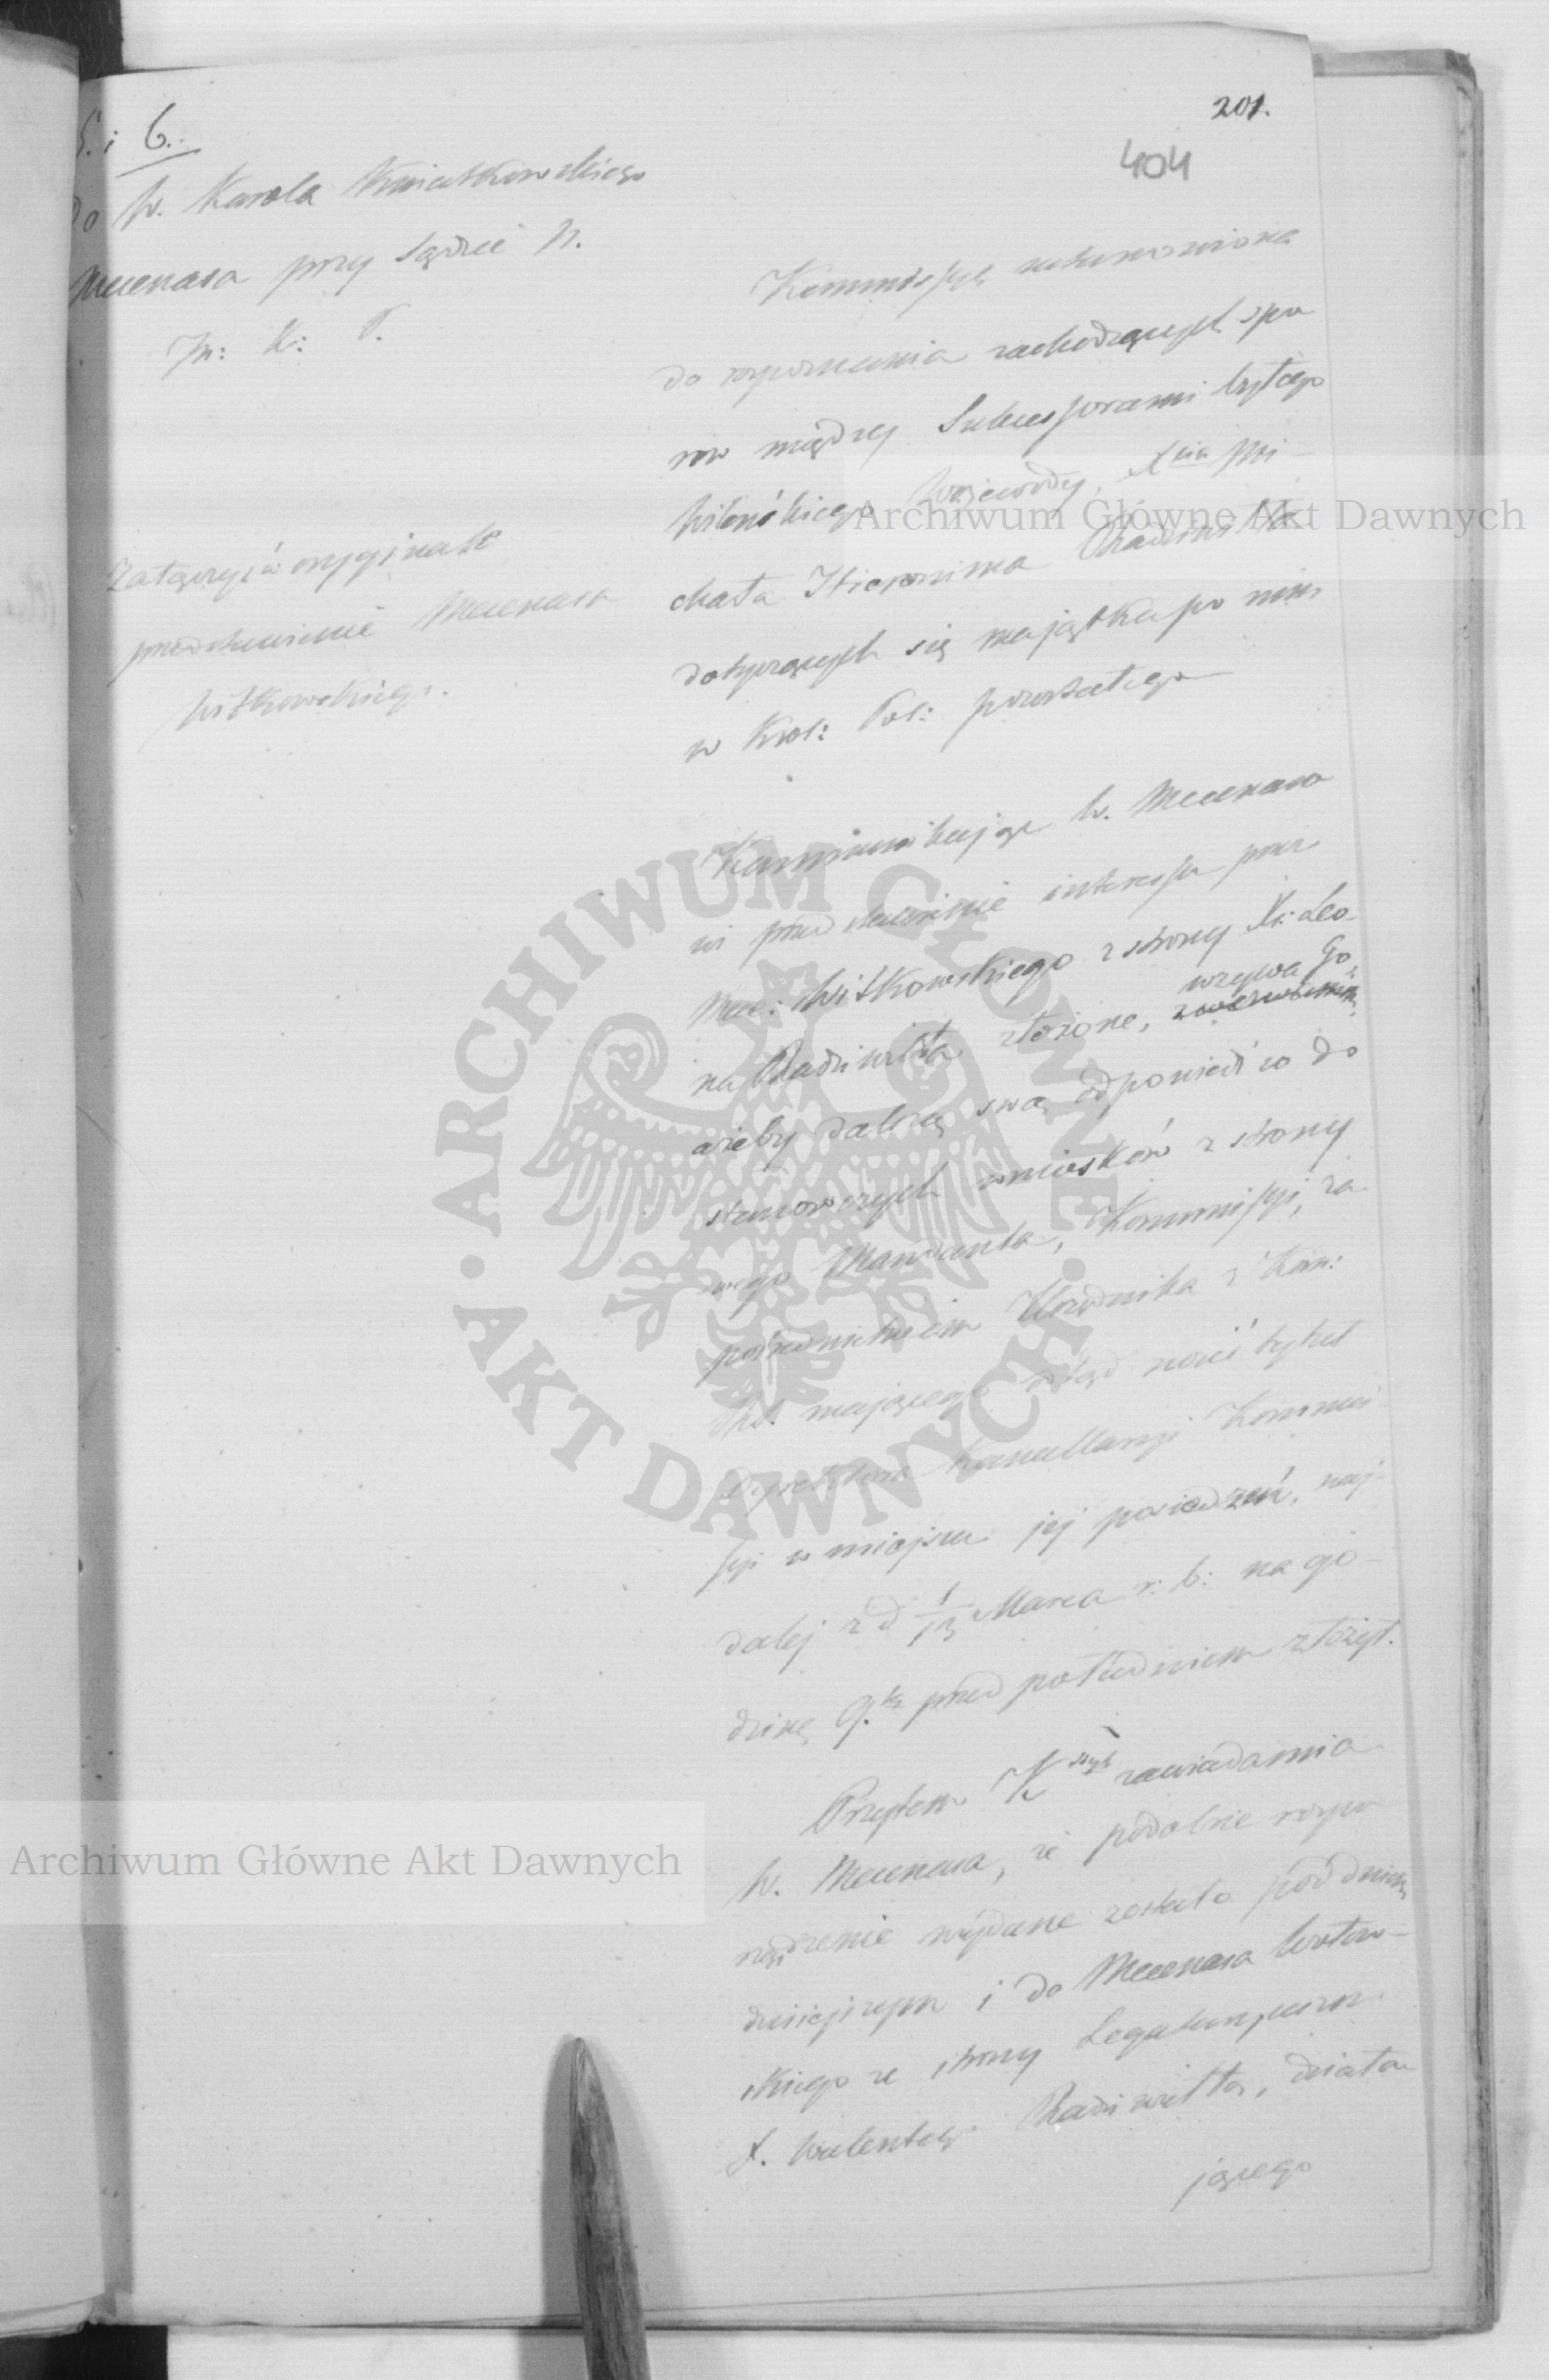 201.
404
5. i 6.
Do W. Karola Kwiatkowskiego
Mecenasa przy Sądzie N.
In: K: P.
Załączyć w oryginale
przedstawienie Mecenasa
Witkowskiego.
Kommissya ustanowiona
do rozpoznania zachodzących spo
rów między Sukcessorami byłego
Wileńskiego Wojewody, Xcia Mi-
chała Hieronima Radziwiłła
dotyczących się majątku po nim
w Król: Pol: pozostałego
Kommunikując W. Mecenaso
wi przedstawienie interessu przez
Mec: Witkowskiego z strony X: Leo-
na Radziwiłła złożone, wzywa Go,
ażeby dalszą swą odpowiedź co do
stanowczych wniosków z strony
swego Mandanta, Kommissyi, za
pośrednictwem Urzędnika z Kan:
mającego odtąd nosić tytuł
Dyrektora Kancellaryi Kommis-
syi w miejscu jej posiedzeń, naj-
dalej z d 1/13 Marca r: b: na go-
dzinę 9.tą przed południem złożył.
Przytem Kssya zawiadamia
W. Mecenasa, że podobne rozpo
rządzenie wydane zostało pod dniem
dzisiejszym i do Mecenasa Wołow-
skiego ze strony Legataryusza
X. Walentego Radziwiłła, działa-
jącego
Archiwum Główne Akt Dawnych
Archiwum Główne Akt Dawnych
ARCHIWUM GŁÓWNE • AKT DAWNYCH •